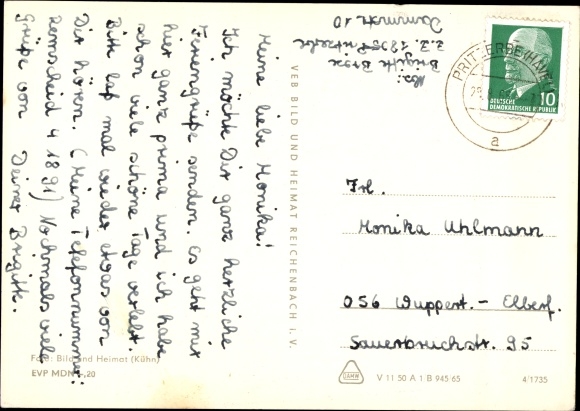 Meine liebe Monika!
Ich möchte Dir ganz herzliche
Feriengrüße senden. Es geht mir
hier ganz prima und ich habe
schon viele schöne Tage verlebt.
Bitte laß mal wieder etwas von
Dir hören. (Meine Telefonnummer:
Remscheid 4 18 91) Nochmals viele
Grüße von Deiner Brigitte.
Abs:
Brigitte
z.Z. 1805 Pritzerbe
Dammstr. 10
VEB BILD UND HEIMAT REICHENBACH I. V.
PRITZERBE (HAVEL)
a
10
DEUTSCHE
DEMOKRATISCHE REPUBLIK
Frl.
Monika Uhlmann
056 Wuppert.- Elberf.
Sauerbruchstr. 95
Foto: Bild und Heimat (Kühn)
EVP MDN 0,20
DAMW
V 11 50 A 1 B 945 65
4/1735